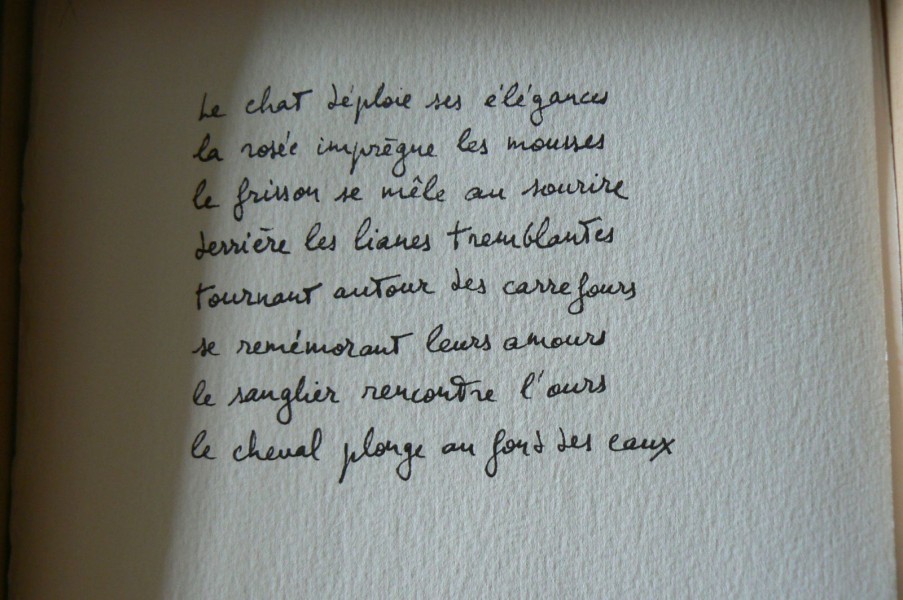 Le chat déploie ses élégances
la rosée imprègne les mousses
le frisson se mêle au sourire
derrière les lianes tremblantes
tournant autour des carrefours
se remémorant leurs amours
le sanglier rencontre l'ours
le cheval plonge au fond des eaux